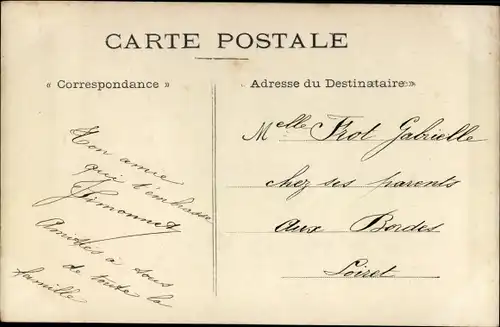 CARTE POSTALE
« Correspondance »
Adresse du Destinataire »
Ton amie
qui t'embrasse
Simonnet
Amitiés à tous
de toute la
famille
Melle Frot Gabrielle
chez ses parents
Aux Bordes
Loiret